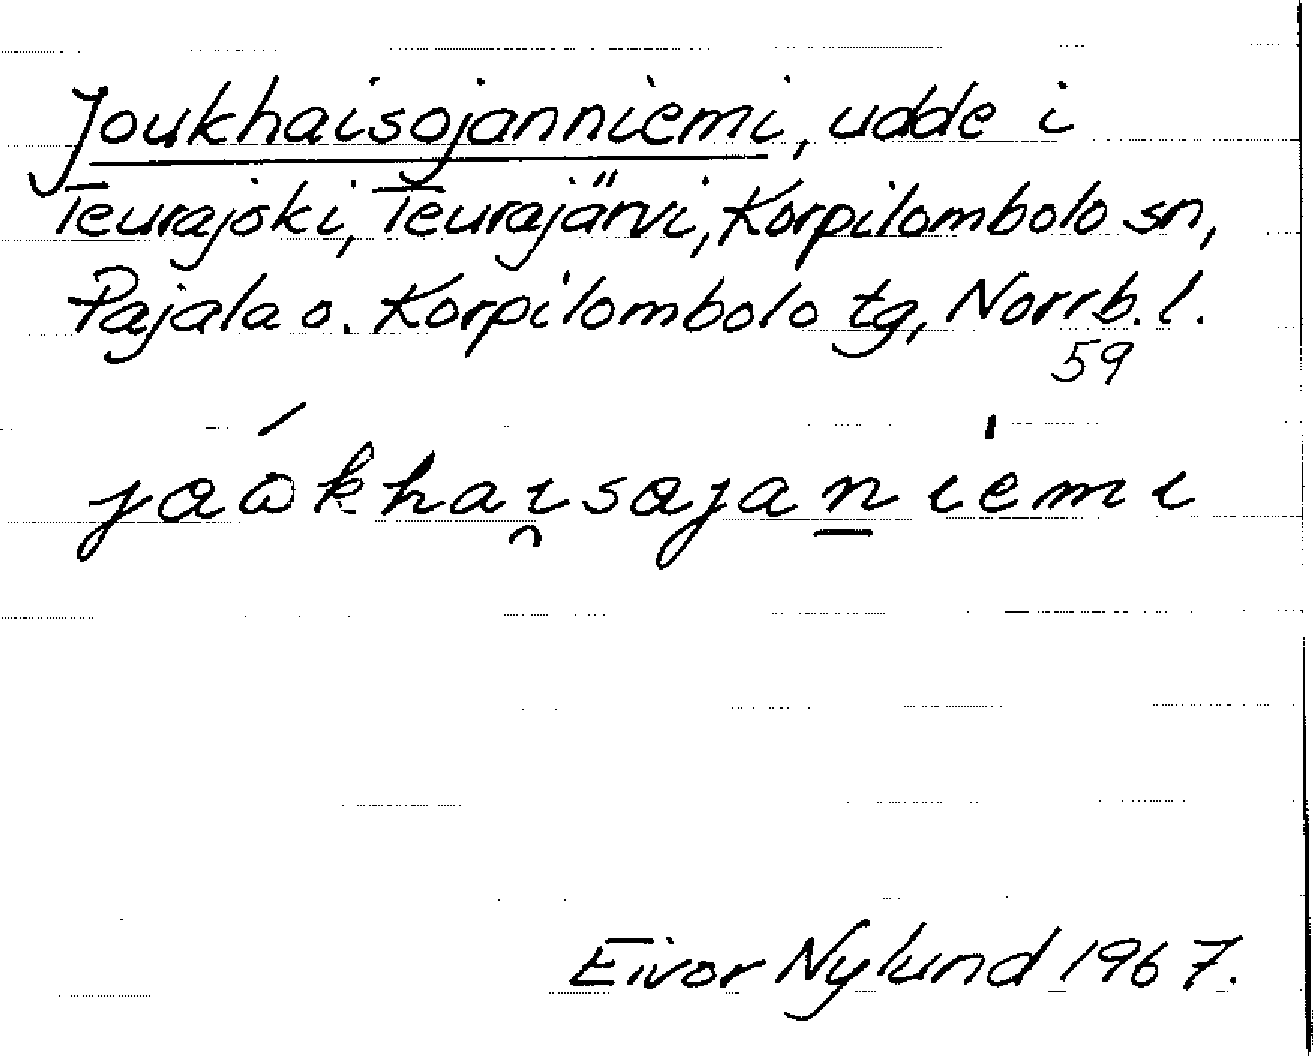 Joukhaisojanniemi, udde i
Teurajoki, Teurajärvi, Korpilombolo sn,
Pajala o. Korpilombolo tg, Norrb. l.
59
Eivor Nylund 1967.